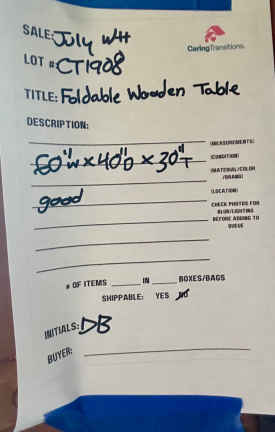 SALE: July WH
CaringTransitions
LOT # CT1908
TITLE: Foldable Wooden Table
DESCRIPTION:
(MEASUREMENTS)
60"W x 40"D x 30"T
(CONDITION)
(MATERIAL/COLOR
/BRAND)
good
(LOCATION)
CHECK PHOTOS FOR
BLUR/LIGHTING
BEFORE ADDING TO
QUEUE
# OF ITEMS ______ IN _____ BOXES/BAGS
SHIPPABLE: YES NO
INITIALS: DB
BUYER: